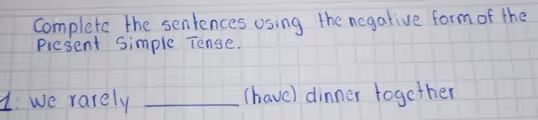 Complete the sentences using the negative form of the
Present Simple Tense.
1. We rarely ________ (have) dinner together